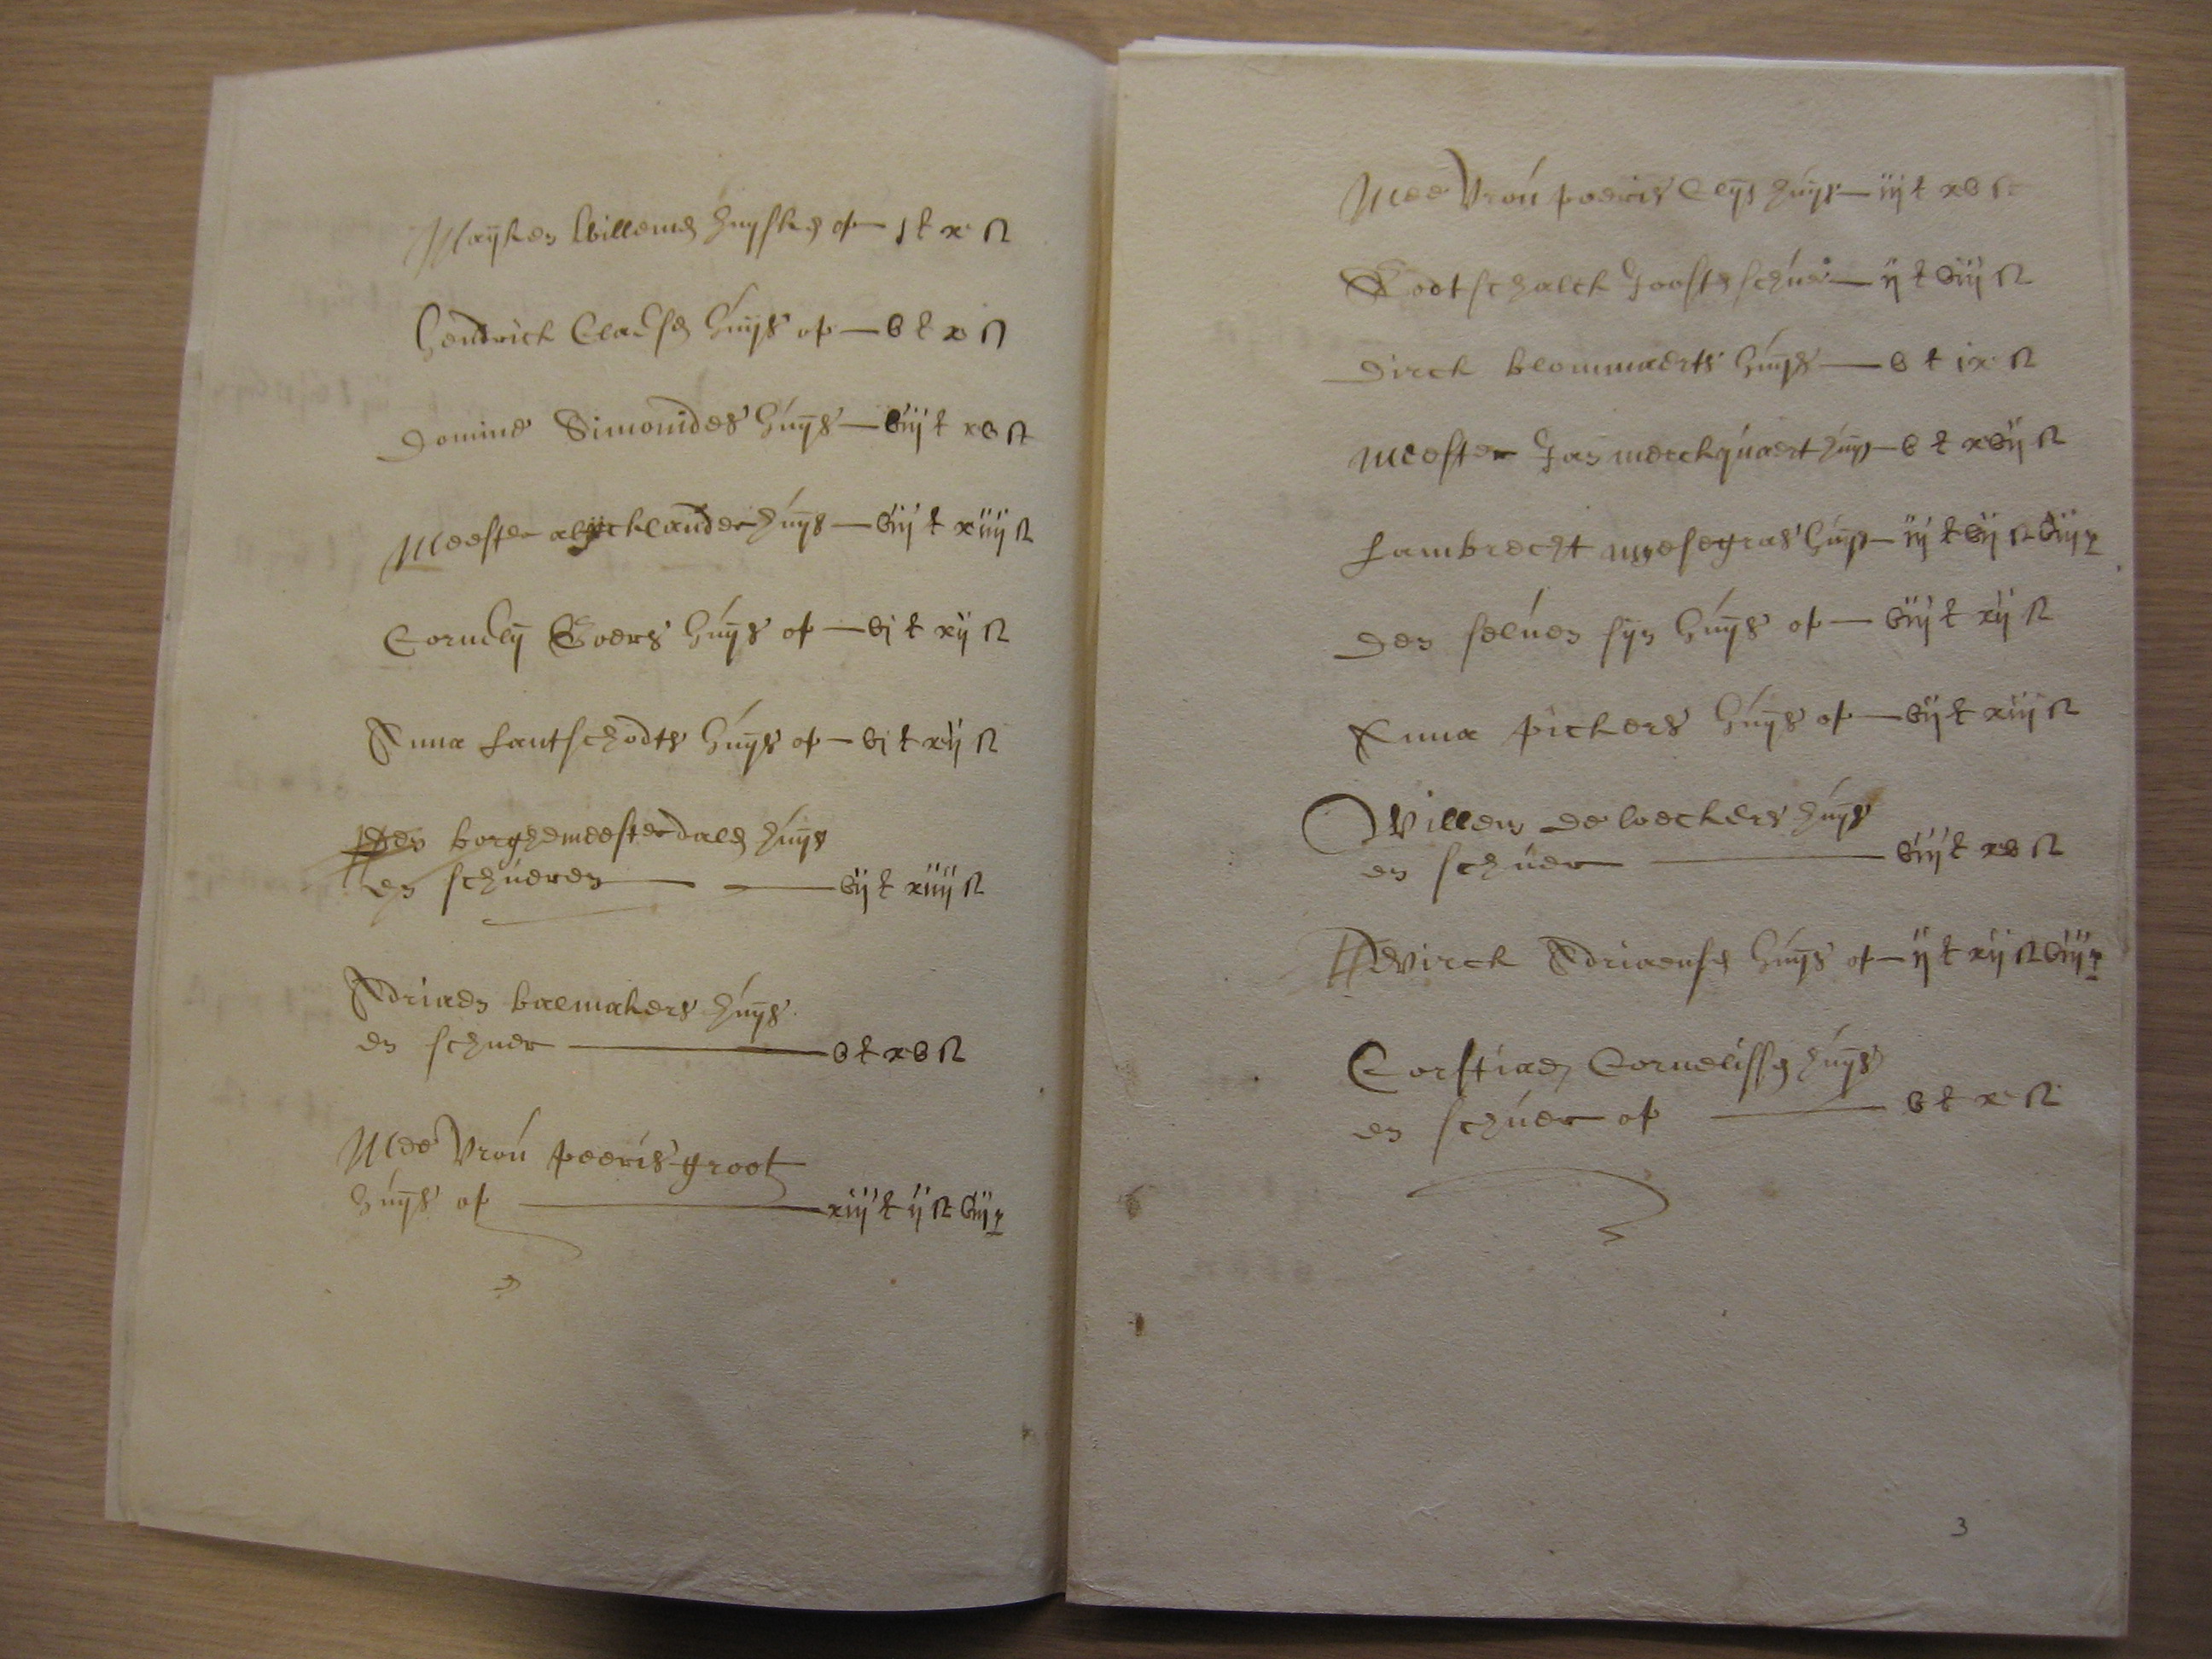 Mayken Willems huyske op — j £ x ß
Hendrick Claess huys op — v £ x ß
Domine Simonides huys — viij £ xv ß
Meester huys — viij £ xiiij ß
Cornely Goers huys op — vj £ xij ß
Anna Lantschodts huys op — vj £ xij ß
Den borghemeester dale huys
en schueren — vij £ xiiij ß
Adriaen balmakers huys
en schuer — v £ xv ß
Mee Vrou peeris groot
huys op — xiij £ ij ß viij p
Mee Vrou peeris cleys huys — iij £ xv ß
Godtschalck Joosts schuer — ij £ viij ß
Dirck blommaerts huys — v £ ix ß
Meester Jan merckquaert huys — v £ xvij ß
Lambrecht huys — iij £ vij ß viij p
Den seluen syn huys op — viij £ xij ß
Anna pickers huys op — vij £ xiij ß
Willem de weckers huys
en schuer — viij £ xv ß
Dirck Adriaense huys op — ij £ xij ß viij p
Corstiaen Cornelisse huys
en schuer op — v £ x ß
3